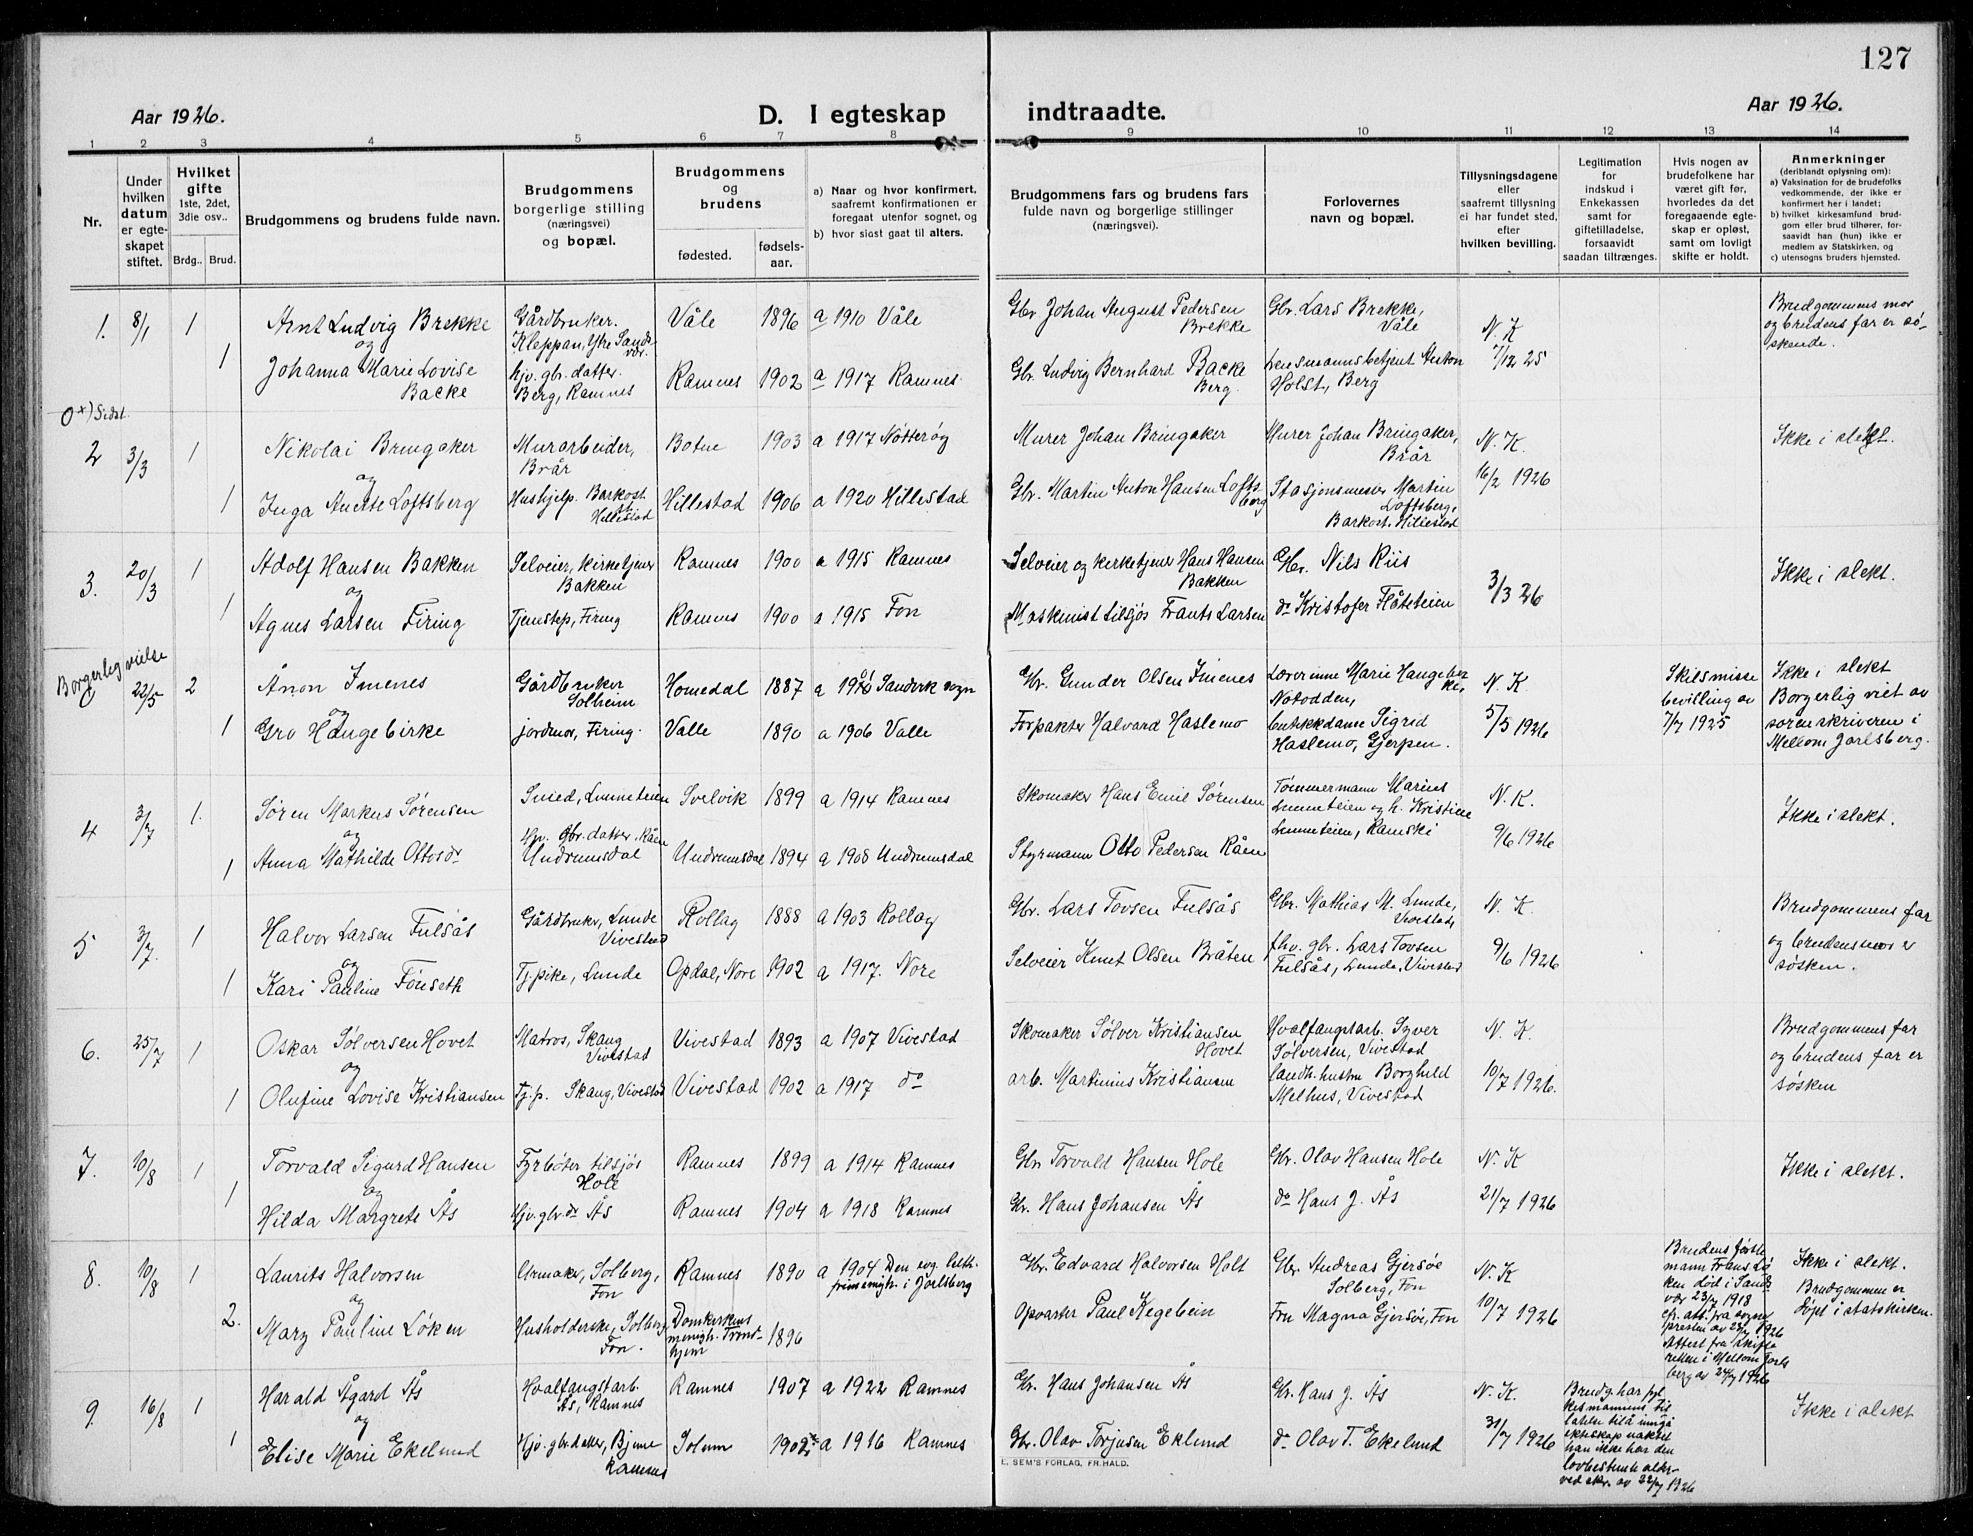 127
Aar 1926. D. I egteskap indtraadte. Aar 1926.
1 2 3 4 5 6 7 8 9 10 11 12 13 14
Nr.
Under hvilken datum er egteskapet stiftet.
Hvilket gifte 1ste, 2det, 3die osv..
Brdg.. Brud.
Brudgommens og brudens fulde navn.
Brudgommens borgerlige stilling (næringsvei) og bopæl.
Brudgommens og brudens
fødested. fødselsaar.
a) Naar og hvor konfirmert, saafremt konfirmationen er foregaat utenfor sognet, og
b) hvor sidst gaat til alters.
Brudgommens fars og brudens fars fulde navn og borgerlige stillinger (næringsvei).
Forlovernes navn og bopæl.
Tillysningsdagene eller saafremt tillysning ei har fundet sted, efter hvilken bevilling.
Legitimation for indskud i Enkekassen samt for giftetilladelse, forsaavidt saadan tiltrænges.
Hvis nogen av brudefolkene har været gift før, hvorledes da det foregaaende egteskap er opløst, samt om lovlig skifte er holdt.
Anmerkninger (deriblandt oplysning om):
a) Vaksination for de brudefolks vedkommende, der ikke er konfirmert her i landet;
b) hvilket kirkesamfund brudgom eller brud tilhører, forsaavidt han (hun) ikke er medlem av Statskirken, og
c) utensogns bruders hjemsted.
1. 8/1 1 Arnt Ludvig Brekke Gårdbruker. Kleppan, Ytre Sandevær. Våle 1896 a 1910 Våle Gbr Johan August Pedersen Brekke Gbr. Lars Brekke, Våle N. K Brudgommens mor og brudens far er søskende.
og
1 Johanna Marie Lovise Backe hjv. gbr. datter. Berg, Ramnes Ramnes 1902 a 1917 Ramnes Gbr. Ludvig Bernhard Backe Berg. Lensmannsbetjent Anton Holst, Berg 7/12 25
2 3/3 1 Nikolai Bringaker Murarbeider, Brår Botne 1903 a 1917 Nøtterøy Murer Johan Bringaker Murer Johan Bringaker, Brår N. K. Ikke i slekt.
og
1 Inga Anette Loftsberg Hushjelp. Barkost Hillestad Hillestad 1906 a 1920 Hillestad Gbr. Martin Anton Hansen Loftsberg Stasjonsmester Martin Loftsberg, Barkost, Hillestad 16/2 1926
3. 20/3 1 Adolf Hansen Bakken Selveier, kirketjener Bakken Ramnes 1900 a 1915 Ramnes Selveier og kirketjener Hans Hansen Bakken Gbr. Nils Riis 3/3 26 Ikke i slekt.
og
1 Agnes Larsen Firing Tjenstep, Firing Ramnes 1900 a 1915 Fon Maskinist tilsjøs Frants Larsen do Kristofer Flåteteien
Borgerlig vielse
22/5 2 Ånon Imenes Gårdbruker Solheim Homedal 1887 Gbr. Gunder Olsen Imenes Lærerinne Marie Haugebirke, Notodden, N. K. Skilsmissebevilling av 7/7 1925 Ikke i slekt Borgerlig viet av sorenskriveren i Mellom Jarlsberg.
og
1 Gro Haugebirke jordmor, Firing. Valle 1890 a 1906 Valle Forpakter Halvard Haslemo butikkdame Sigrid Haslemo, Gjerpen. 5/5 1926
4 3/7 1. Søren Markus Sørensen Smed, Linneteien Svelvik 1899 a 1914 Ramnes Skomaker Hans Emil Sørensen Tømmermann Marius Linneteien og h. Kristine Linneteien, N. K. Ikke i slekt.
og
1 Anna Mathilde Ottosdr Hjv. Gbr. datter. Råen Undrumsdal Undrumsdal 1894 a 1908 Undrumsdal Styrmann Otto Pedersen Råen 9/6 1926
5 3/7. 1 Halvor Larsen Fulsås Gårdbruker, Lunde Vivestad Rollag 1888 a 1903 Rollag Gbr. Lars Tovsen Fulsås Gbr. Mathias M. Lunde, Vivestad, N. K. Brudgommens far og brudens mor er søsken.
og
1 Kari Pauline Fønseth Tj.pike, Lunde Opdal, Nore 1902 a 1917. Nore Selveier Knut Olsen Bråten fhv. gbr. Lars Tovsen Fulsås, Lunde, Vivestad 9/6 1926
6. 25/7 1 Oskar Sølversen Hovet Matros, Skaug Vivestad Vivestad 1893 a 1907 Vivestad Skomaker Sølver Kristiansen Hovet Hvalfangstarb. Syver Sølversen, Vivestad N. K. Brudgommens far og brudens far er søsken
og
1 Olufine Lovise Kristiansen Tj.p. Skaug, Vivestad Vivestad 1902 a 1917 do arb. Martinius Kristiansen landh. hustru Borghild Melhus, Vivestad 10/7 1926.
7. 10/8 1 Torvald Sigurd Hansen Fyrbøter tilsjøs Hole Ramnes 1899 a 1914 Ramnes Gbr Torvald Hansen Hole Gbr. Olav Hansen Hole N. K Ikke i slekt.
og
1 Hilda Margrete Ås Hjv. gbr. dr Ås Ramnes 1904 a 1918 Ramnes Gbr. Hans Johansen Ås do Hans J. Ås 21/7 1926
8. 10/8 1 Laurits Halvorsen Urmaker, Solberg, Fon Ramnes 1890 a 1904 Den evg. luth. frimenigh. i Jarlsberg Gbr. Edvard Halvorsen Holt Gbr. Andreas Gjersøe Solberg, Fon N. K Brudens første mann Frans Løken død i Sandevær 23/7 1918 cfr. att. fra sognepresten av 23/7 1926 Attest fra skifteretten i Mellom Jarlsberg av 24/7 1926 Ikke i slekt. Brudgommen er døpt i statskirken.
og
2. Mary Pauline Løken Husholderske, Solberg Fon. Domkirkens menigh. Trondhjem 1896 Opvarter Paul Kegebein Fru Magna Gjersøe, Fon 10/7 1926
9. 16/8 1 Harald Ågard Ås Hvalfangstarb. Ås, Ramnes Ramnes 1907 a 1922 Ramnes Gbr. Hans Johansen Ås Gbr. Hans J. Ås N. K. Brudg. har fylkesmannens tillatelse til å inngå ekteskap uaktet han ikke har den lovbestemte alder ved skr. av 22/7 1926 Ikke i slekt
og
1 Elise Marie Ekelund Hjv. gbr. datter, Bjune Ramnes Solum 1902 a 1916 Ramnes Gbr. Olav Torjusen Eklund do Olav T. Ekelund 31/7 1926
E. SEM'S FORLAG, FR.HALD.